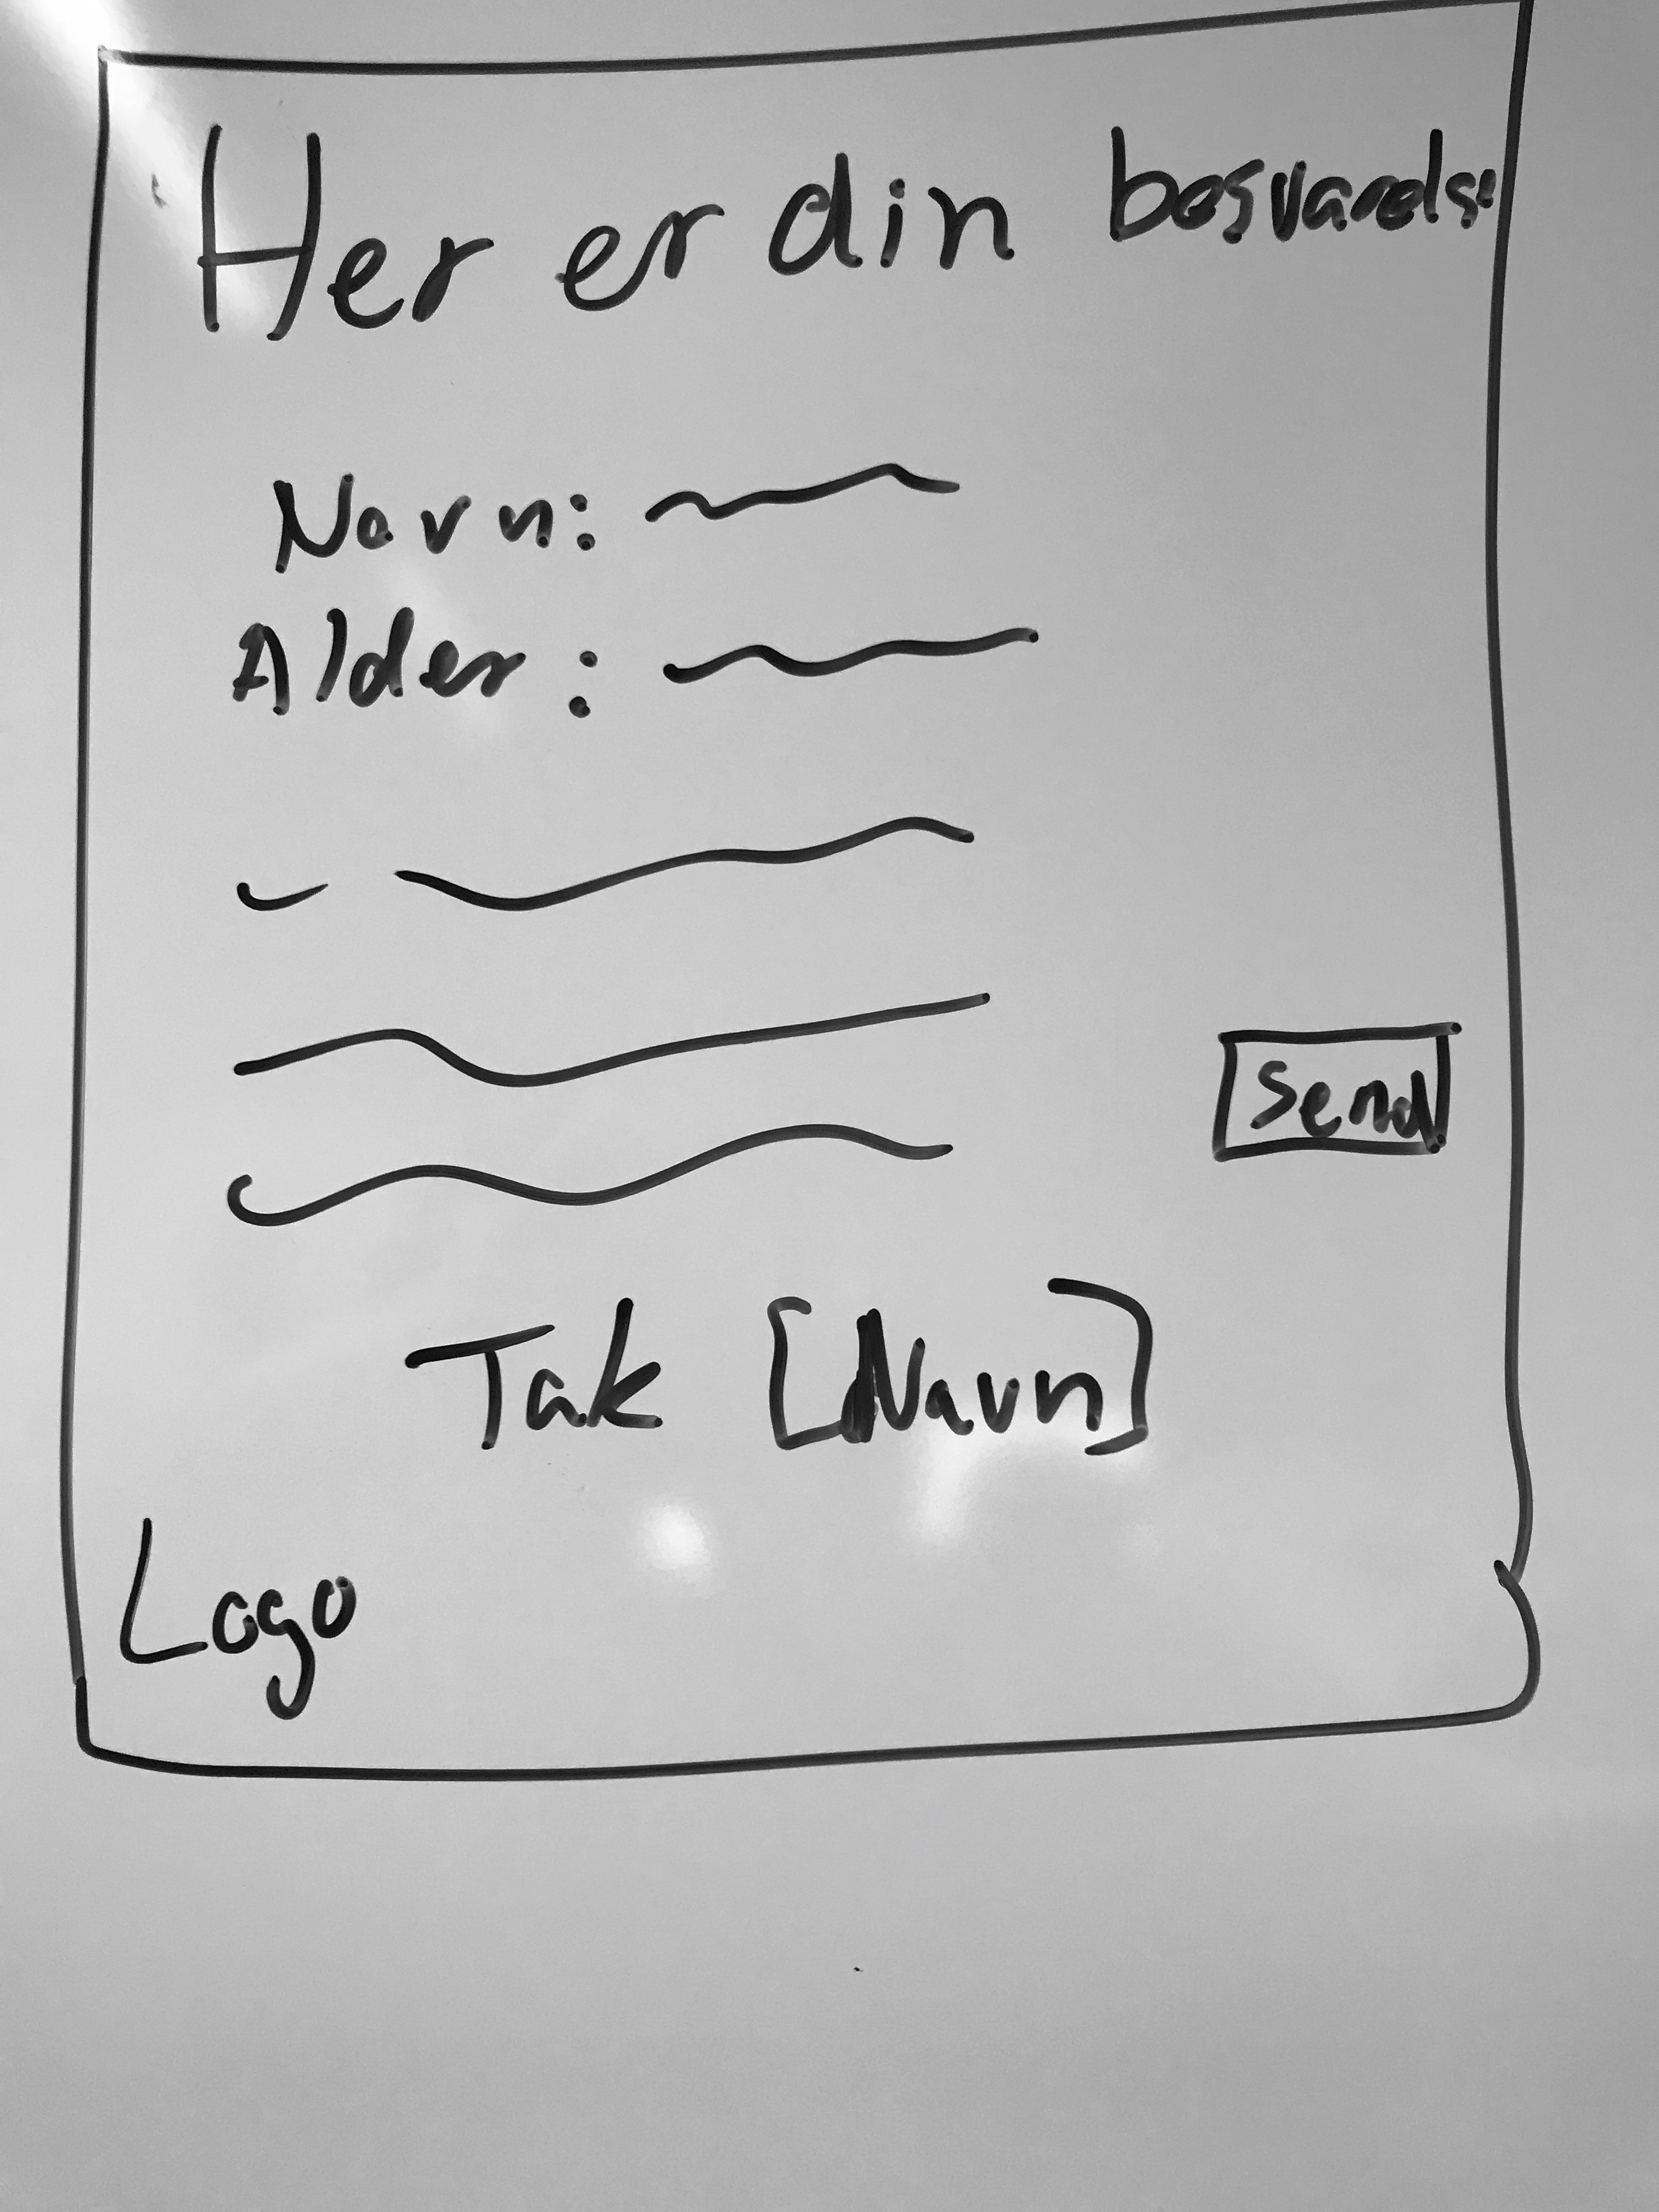 Her er din besvarelse
Navn:
Alder:
Send
Tak [Navn]
Logo